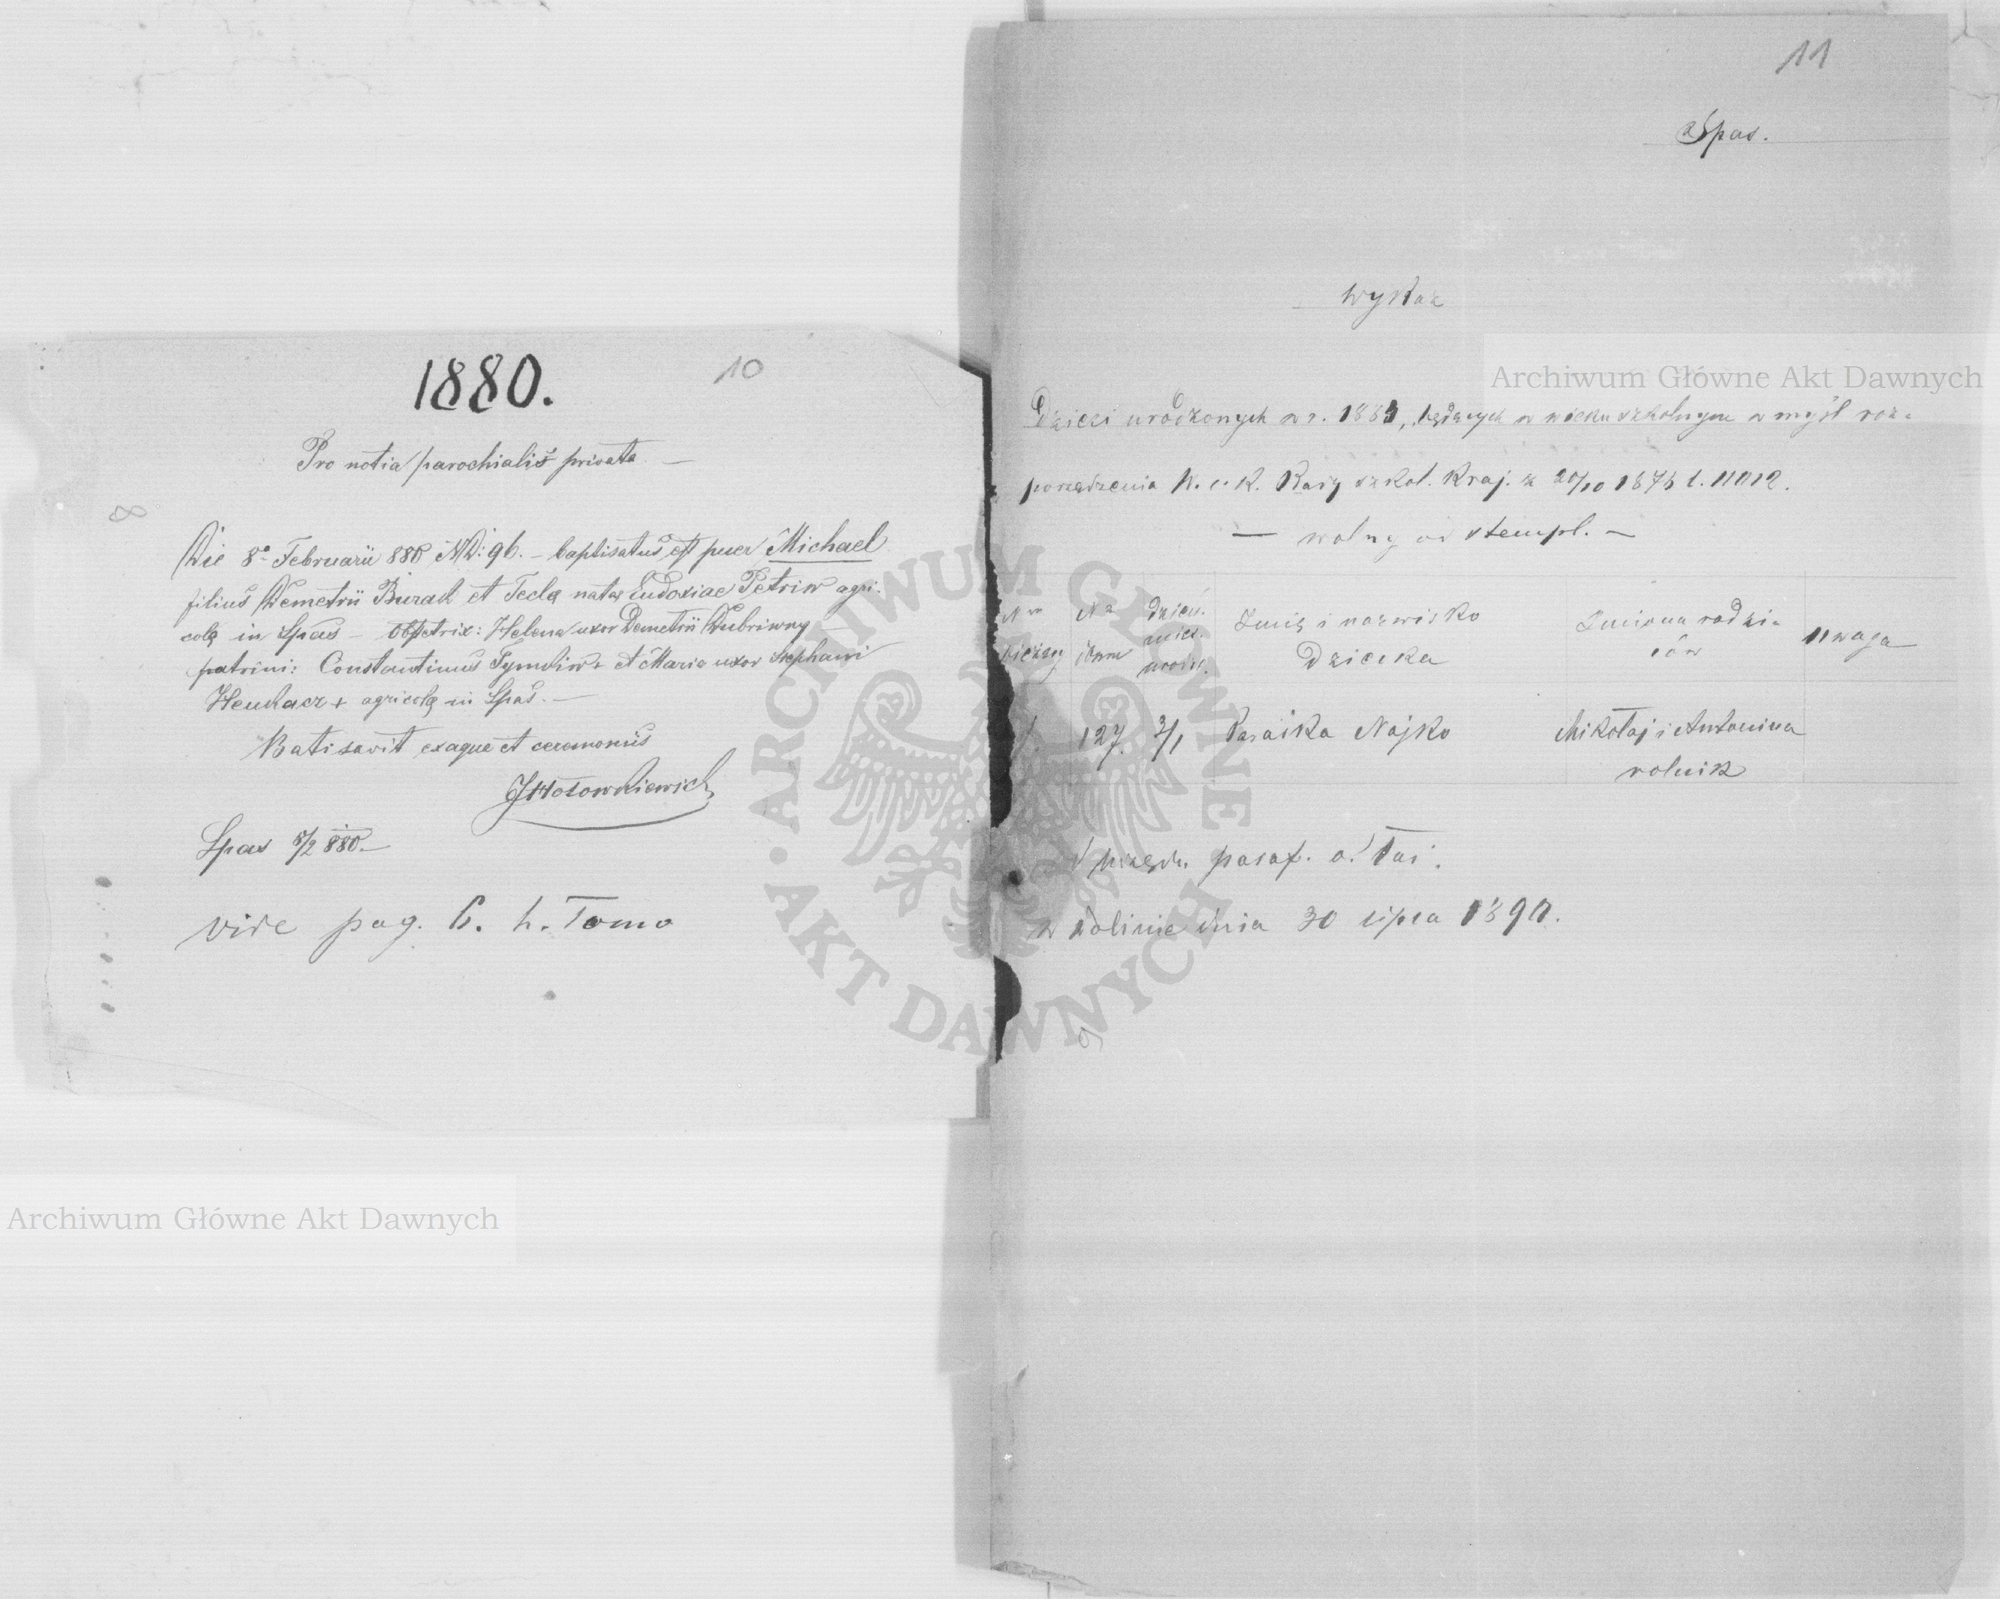 1880.
10
Pro notia parochialis privata —
8
Die 8ª Februarii 880 ND: 96. – baptisatus est puer Michael
filius Demetrii Burak et Tecla nata Eudoxiae Petriw agri-
colę in Spas – Obstetrix: Helena uxor Demetrii Dubriwny
patrini: Constantinus Tymkiw + et Maria uxor Stephani
+ agricolę in Spas. –
Batisavit exaque et ceremoniis
Spas 8/2 880. –
vide pag. 6. h. Tomo
11
Spas.
Wykaz
Dzieci urodzonych w r. 1883, będących w wieku szkolnym w myśl roz-
porządzenia W. c. k. Rady szkol. Kraj. z 20/10 1876 l. 11012.
— wolny od stempl. —
Nr bieżący
Nr domu
dzień. mies. urodz.
Imię i nazwisko Dziecka
Imiona rodzi-ców
Uwaga
1 127. 3/1 Paraśka Najko Mikołaj i Antonina
rolnik
Z urzędu paraf. o. łać.
w Dolinie dnia 30 lipca 1890.
9
Archiwum Główne Akt Dawnych
Archiwum Główne Akt Dawnych
ARCHIWUM GŁÓWNE • AKT DAWNYCH •